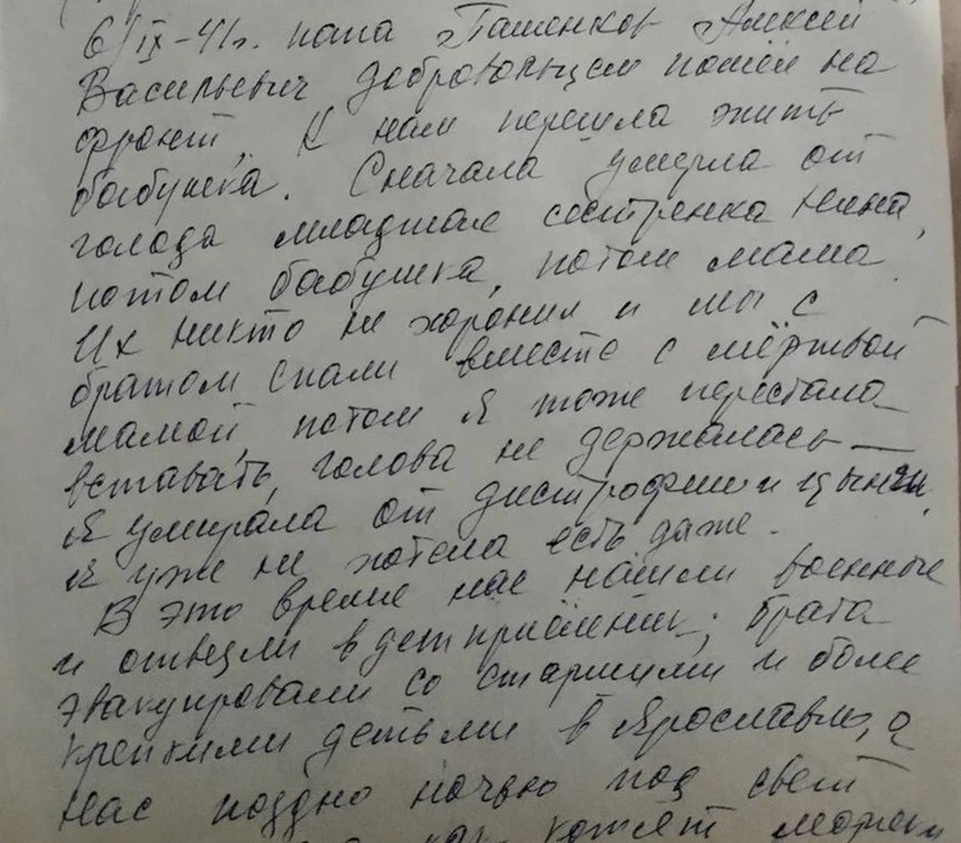 6/IX-41г. папа Пашенков Алексей
Васильевич добровольцем пошёл на
фронт. К нам перешла жить
бабушка. Сначала умерла от
голода младшая сестрёнка Нина,
потом бабушка, потом мама.
Их никто не хоронил и мы с
братом спали вместе с мёртвой
мамой, потом я тоже перестала
вставать, голова не держалась —
я умирала от дистрофии и цынги.
Я уже не хотела есть даже.
В это время нас нашли военные
и отвезли в детприёмник; брата
эвакуировали со старшими и более
крепкими детьми в Ярославль, а
нас поздно ночью под свет
как